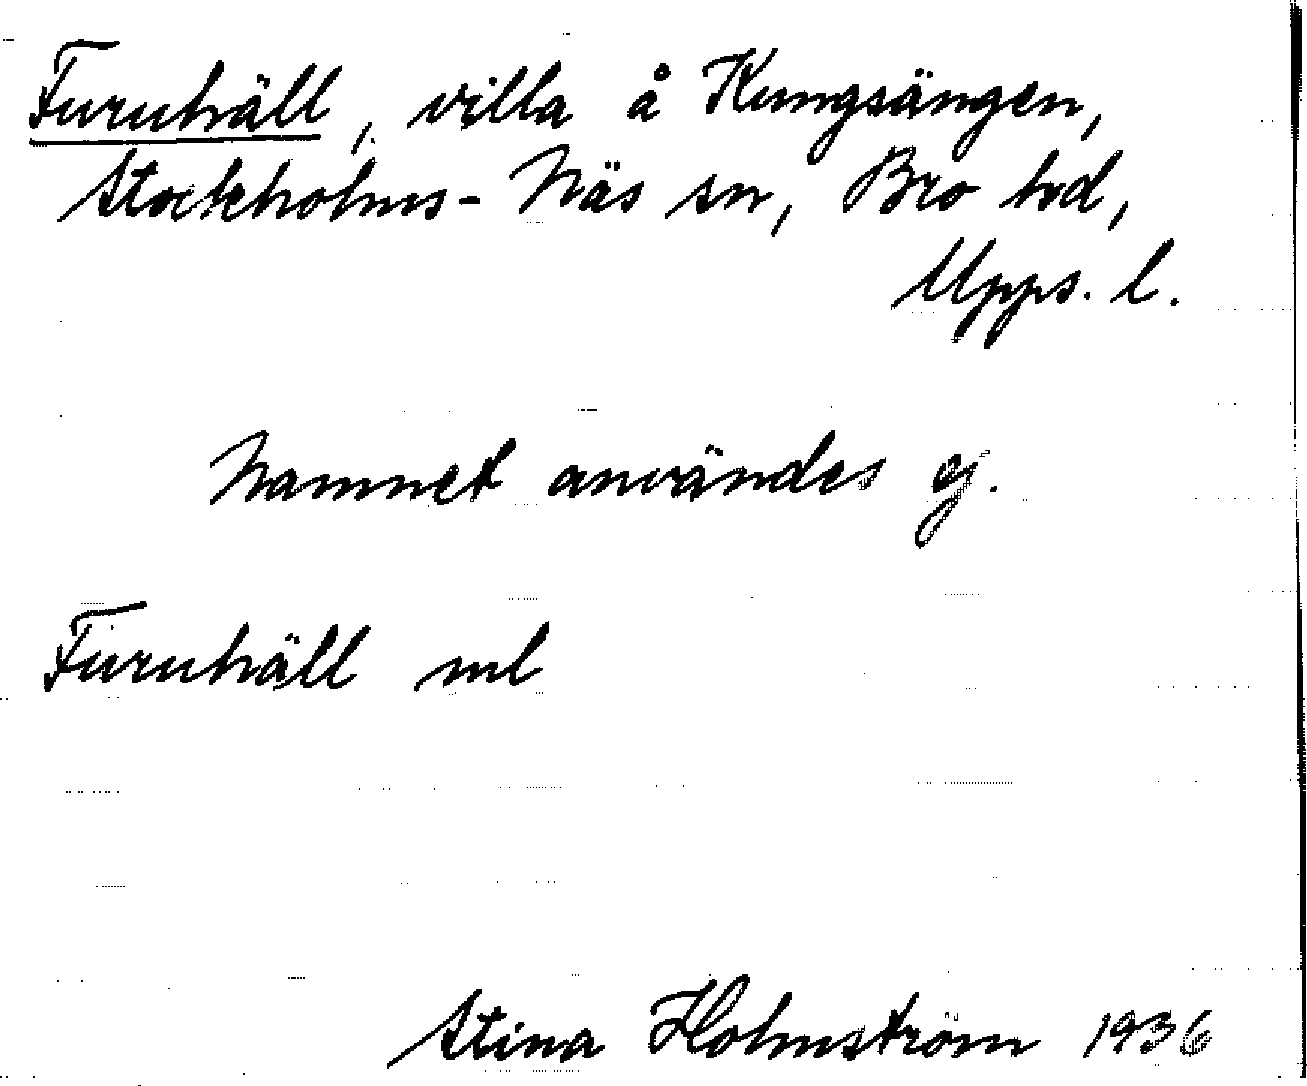 Furuhäll, villa å Kungsängen,
Stockholms-Näs sn, Bro hd,
Upps. l.
Namnet användes ej.
Furuhäll ml
Stina Holmström 1936